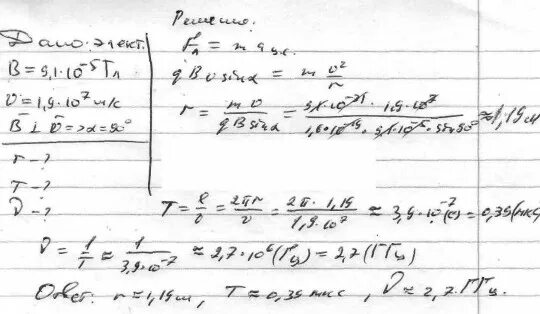 Дано: элект.
B = 9,1·10⁻⁵ Тл
υ = 1,9·10⁷ м/с
B̄ ⊥ ῡ => α = 90°
r - ?
T - ?
ν - ?
Решение.
Fл = m aц.с.
qBυ sinα = m υ²/r
r = mυ/(qB sinα) = (9,1·10⁻³¹ · 1,9·10⁷)/(1,6·10⁻¹⁹ · 9,1·10⁻⁵ · sin90°) ≈ 1,19 м
T = l/υ = 2πr/υ = (2π · 1,19)/(1,9·10⁷) ≈ 3,9·10⁻⁷ (с) = 0,39 (мкс)
ν = 1/T ≈ 1/(3,9·10⁻⁷) ≈ 2,7·10⁶ (Гц) = 2,7 (ГГц)
Ответ: r ≈ 1,19 м, T ≈ 0,39 мкс, ν ≈ 2,7 ГГц.